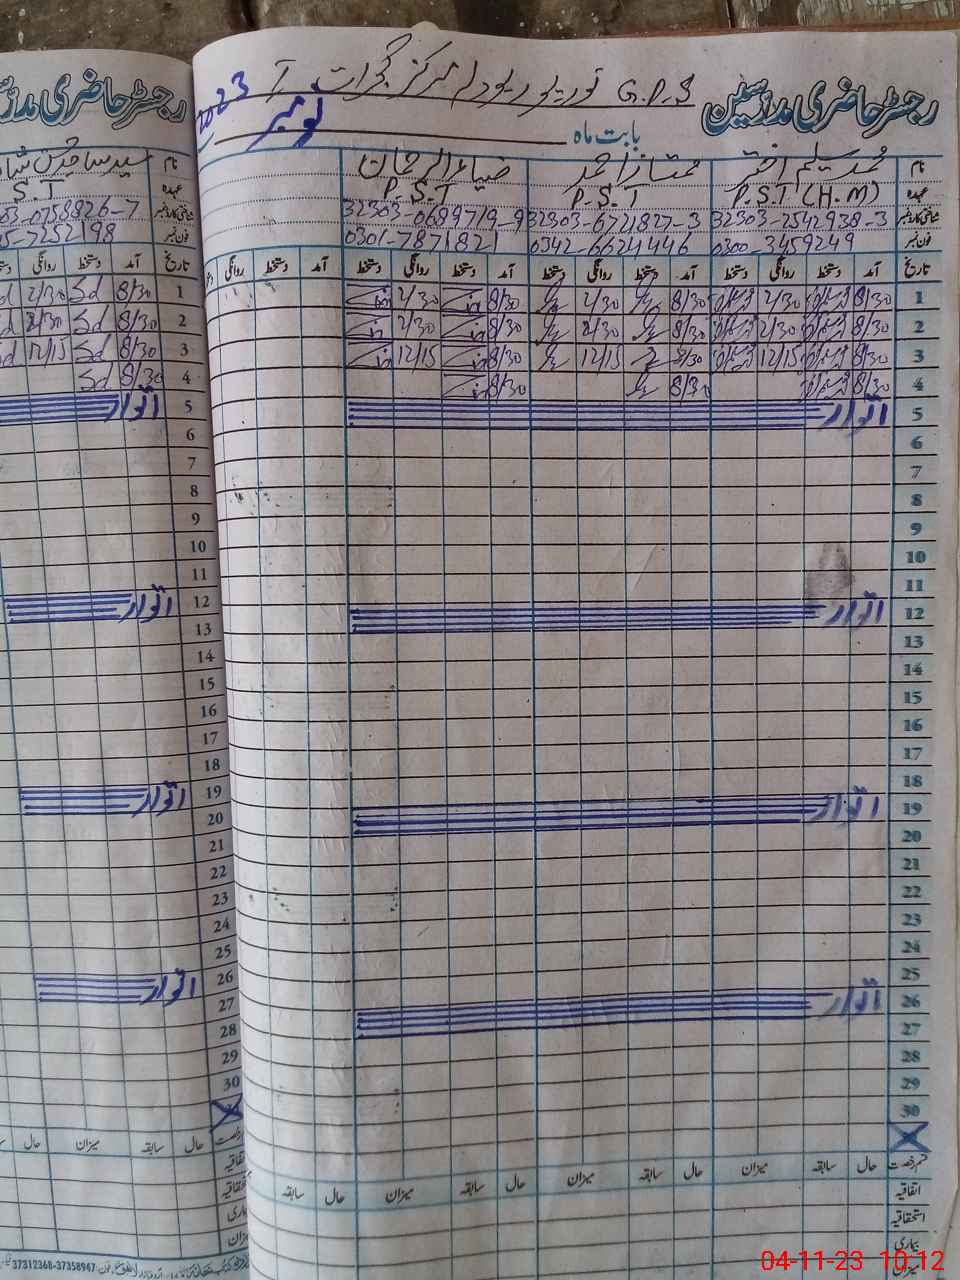 رجسٹر حاضری مدرسین
G.P.S
مرکز گجرات
بابت ماہ نومبر 2023
نام محمد سلیم اختر ممتاز احمد ضیاء الرحمان
عہدہ P.S.T (H.M) P.S.T P.S.T
شناختی کارڈ نمبر 32303-2542938-3 32303-6721827-3 32303-0689719-9
فون نمبر 0300-3459249 0342-6624446 0301-7871821
تاریخ آمد دستخط روانگی دستخط آمد دستخط روانگی دستخط آمد دستخط روانگی دستخط آمد دستخط روانگی
1 8/30 2/30 8/30 2/30 8/30 2/30
2 8/30 2/30 8/30 2/30 8/30 2/30
3 8/30 12/15 8/30 12/15 8/30 12/15
4 8/30 8/30 8/30
5 اتوار
6
7
8
9
10
11
12 اتوار
13
14
15
16
17
18
19 اتوار
20
21
22
23
24
25
26 اتوار
27
28
29
30
قسم رخصت حال سابقہ میزان حال سابقہ میزان حال سابقہ میزان حال سابقہ
اتفاقیہ
استحقاقیہ
بیماری
میزان
رجسٹر حاضری
نام سید ساجد
عہدہ S.T
شناختی کارڈ نمبر 0758826-7
فون نمبر 7252198
تاریخ آمد دستخط روانگی
1 8/30 Sd 2/30
2 8/30 Sd 2/30
3 8/30 Sd 12/15
4 8/30 Sd
5 اتوار
6
7
8
9
10
11
12 اتوار
13
14
15
16
17
18
19 اتوار
20
21
22
23
24
25
26 اتوار
27
28
29
30
حال سابقہ میزان حال
37312368-37358947
04-11-23 10:12